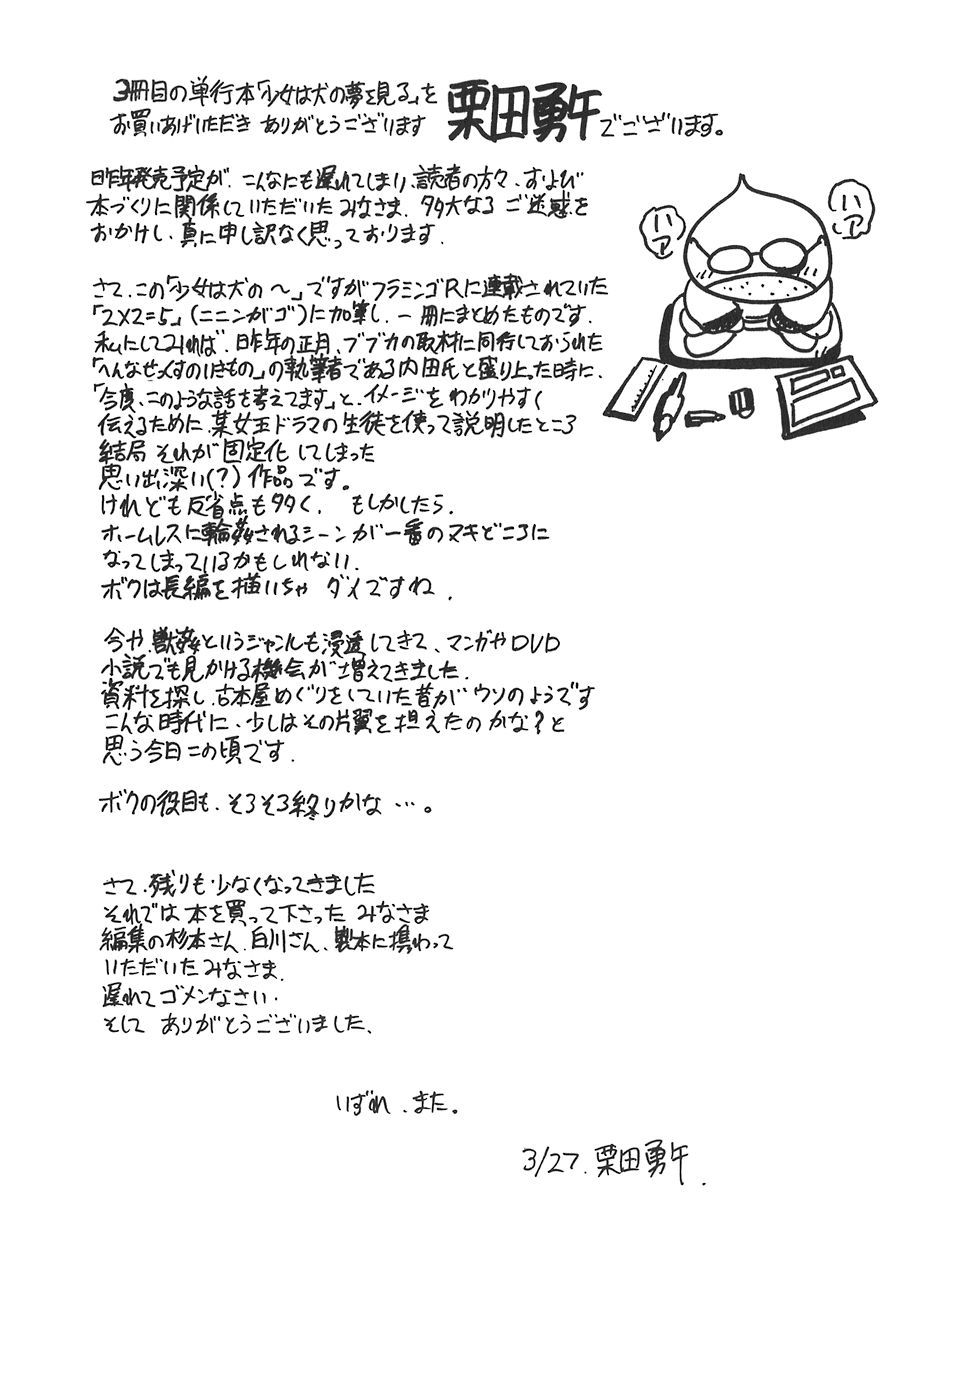 3冊目の単行本「少女は犬の夢を見る」を
お買いあげいただき ありがとうございます 栗田勇午でございます。
昨年発売予定が、こんなにも遅れてしまい、読者の方々、および
本づくりに関係していただいたみなさま、多大なるご迷惑を
おかけし、真に申し訳なく思っております.
ハァ
ハァ
さて、この「少女は犬の〜」ですがフラミンゴRに連載されていた
「2×2=5」(ニニンがゴ)に加筆し、一冊にまとめたものです.
私にしてみれば、昨年の正月、ブブカの取材に同行しておられた
「へんなせっくすのいきもの」の執筆者である内田氏と盛り上った時に、
「今度、このような話を考えてます」と、イメージをわかりやすく
伝えるために、某女王ドラマの生徒を使って説明したところ
結局 それが固定化してしまった
思い出深い(?)作品です。
けれども反省点も多く、 もしかしたら、
ホームレスに輪姦されるシーンが一番のヌキどころに
なってしまっているかもしれない.
ボクは長編を描いちゃ ダメですね.
今や、獣姦というジャンルも浸透してきて、マンガやDVD
小説でも見かける機会が増えてきました.
資料を探し、古本屋めぐりをしていた昔が ウソのようです
こんな時代に、少しはその片翼を担えたのかな?と
思う今日この頃です.
ボクの役目も、そろそろ終りかな…。
さて、残りも少なくなってきました
それでは 本を買って下さった みなさま
編集の杉本さん、白川さん、製本に携わって
いただいたみなさま.
遅れてゴメンなさい.
そして ありがとうございました、
いずれ、また。
3/27. 栗田勇午.